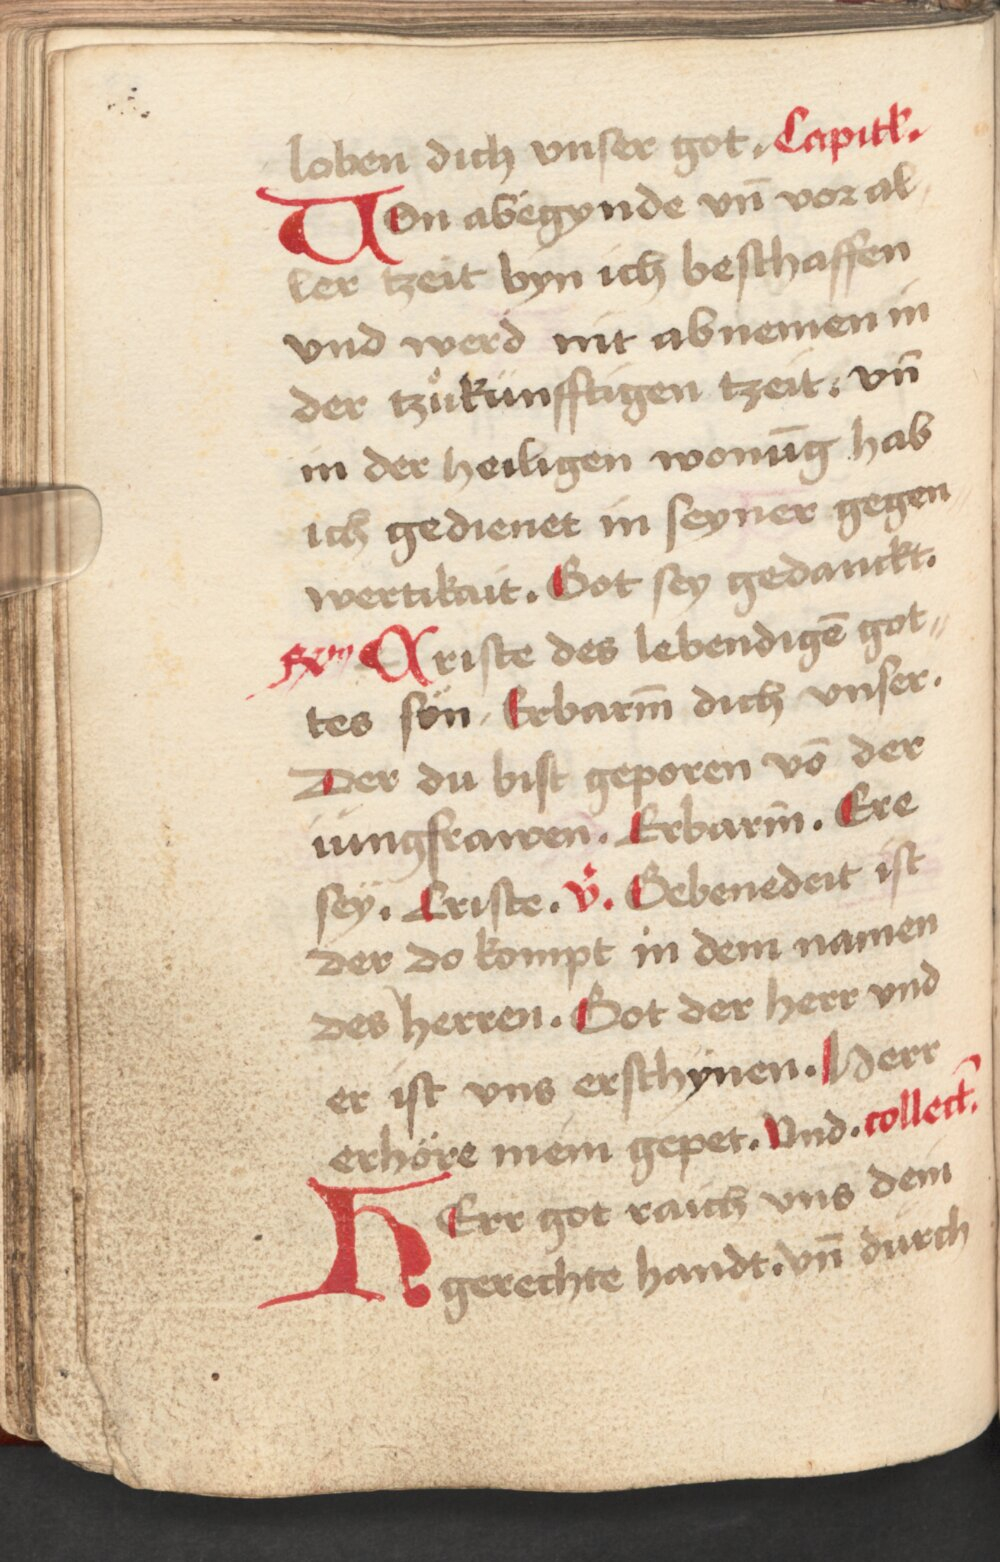 loben dich vnser got. Capitk.
VOn abegynde vn̄ vor al
ler tzeit byn ich beschaffen
vnd werd nit abnemen in
der tzůkünfftigen tzeit. vn̄
in der heiligen wonūg hab
ich gedienet in seyner gegen
wertikait. Got sey gedanckt.
Criste des lebendigē got
tes sön. Erbarm̄ dich vnser.
Der du bist geporen vō der
iungfrawen. Erbarm̄. Ere
sey. Criste. v̉. Gebenedeit ist
der do kompt in dem namen
des herren. Got der herr vnd
er ist vns erschynen. Herr
erhöre mein gepet. Vnd. collect̄.
HErr got raich vns dein
gerechte handt. vn̄ durch